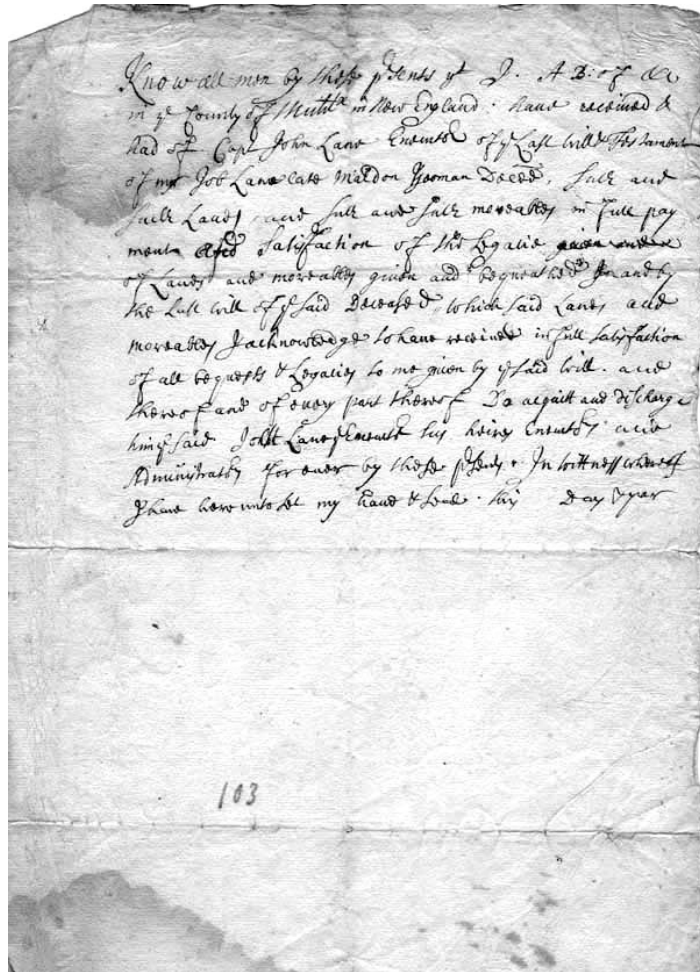 Know all men by these p̄sents yt I. A B: of &c
in ye County of Midlx in New England. have received &
had of Capt John Lane Executor of ye Last will & Testament
of mr Job Lane late Maldon Yeoman Deceēd, Such and
Such Lands, and Such and Such moveables in full pay
ment and Satisfaction of the Legacie
of Lands and moveables given and bequeathed In and by
the Last will of ye said Deceased, which said Lands and
moveables I acknowledge to have received in full satisfaction
of all bequests & Legacies to me given by ye said will. and
thereof and of every part thereof Do acquitt and discharge
him ye said John Lane ye Executr his heires Executrs and
Administratrs for ever by these p̄sents. In wittness whereof
I have hereunto set my hand & seal. this Day & year
103